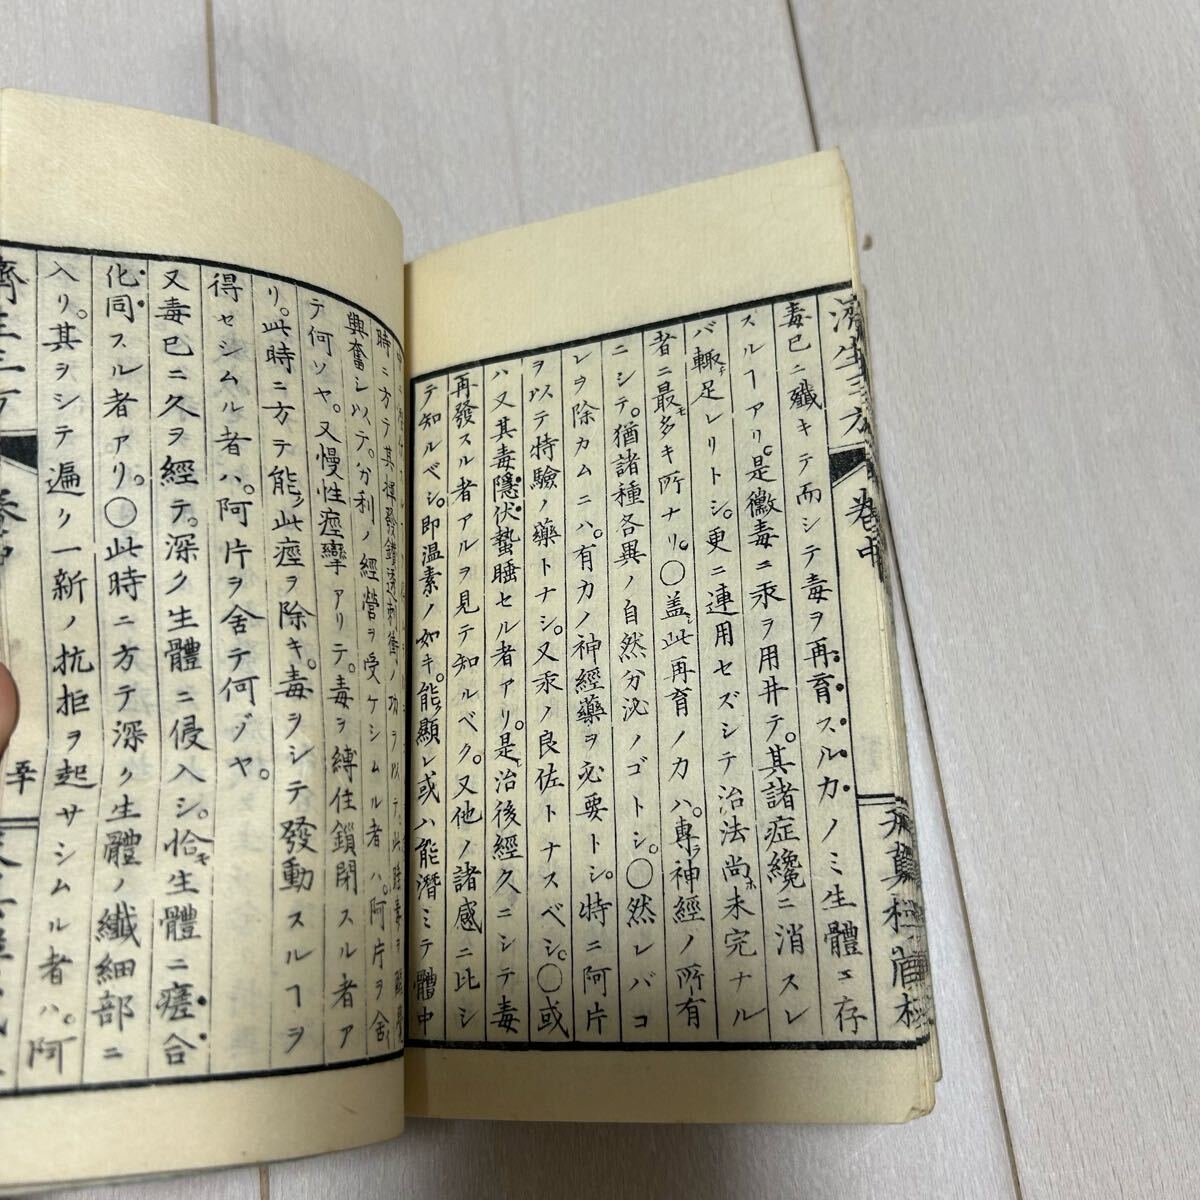 濟生三方
卷中
毒已ニ殲キテ而シテ毒ヲ再育スルカノミ生體ニ存
スルヿアリ。是黴毒ニ汞ヲ用井テ。其諸症纔ニ消スレ
バ輙チ足レリトシ。更ニ連用セズシテ治法尚ホ未完ナル
者ニ最モ多キ所ナリ。○盖シ此再育ノ力ハ。專ラ神經ノ所有
ニシテ。猶諸種各異ノ自然分泌ノゴトシ。○然レバコ
レヲ除カムニハ。有力ノ神經藥ヲ必要トシ。特ニ阿片
ヲ以テ特驗ノ藥トナシ。又汞ノ良佐トナスベシ。○或
ハ又其毒隱伏蟄睡セル者アリ。是レ治後經久ニシテ毒
再發スル者アルヲ見テ知ルベク。又他ノ諸感ニ比シ
テ知ルベシ。即温素ノ如キ。能ク顯レ或ハ能潛ミテ體中
時ニ方テ其揮發鑚透刺衝ノ功ヲ以テ。此睡毒ヲ
興奮シ以テ。ガ利ノ經營ヲ受ケシムル者ハ。阿片ヲ舍イ
テ何ソヤ。又慢性痙攣アリテ。毒ヲ縛住鎖閉スル者ア
リ。此時ニ方テ能ク此痙ヲ除キ。毒ヲシテ發動スルヿヲ
得セシムル者ハ。阿片ヲ舍テ何ゾヤ。
又毒已ニ久ヲ經テ。深ク生體ニ侵入シ。恰モ生體ニ瘥合
化同スル者アリ。○此時ニ方テ深ク生體ノ纖細部ニ
入リ。其ヲシテ遍ク一新ノ抗拒ヲ起サシムル者ハ。阿
濟生三方